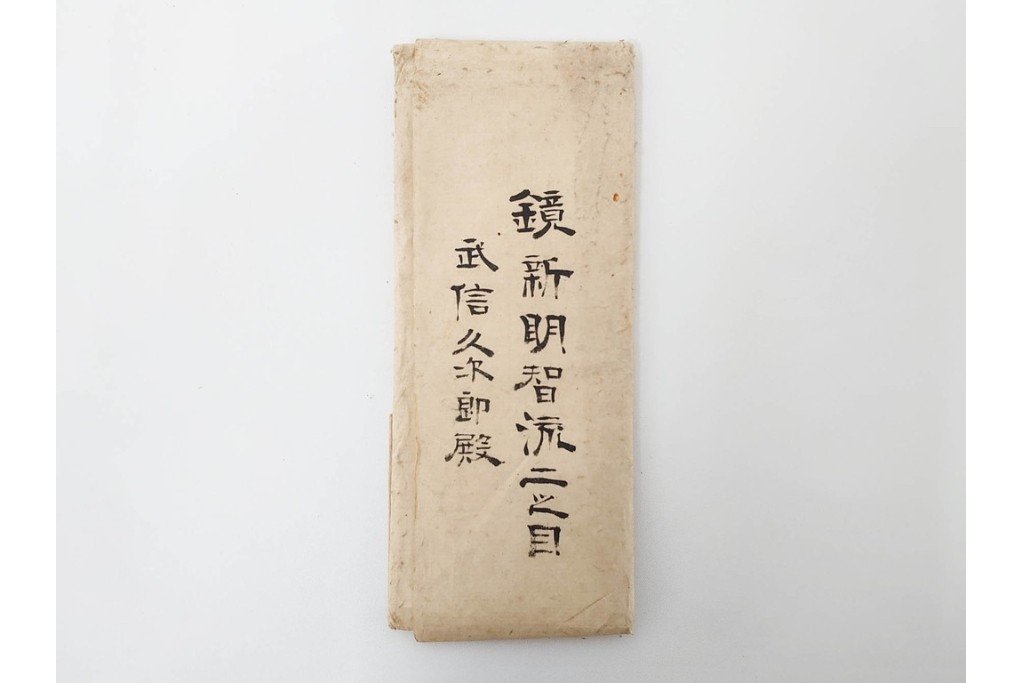 鏡新明智流二之目
武信久次郎殿